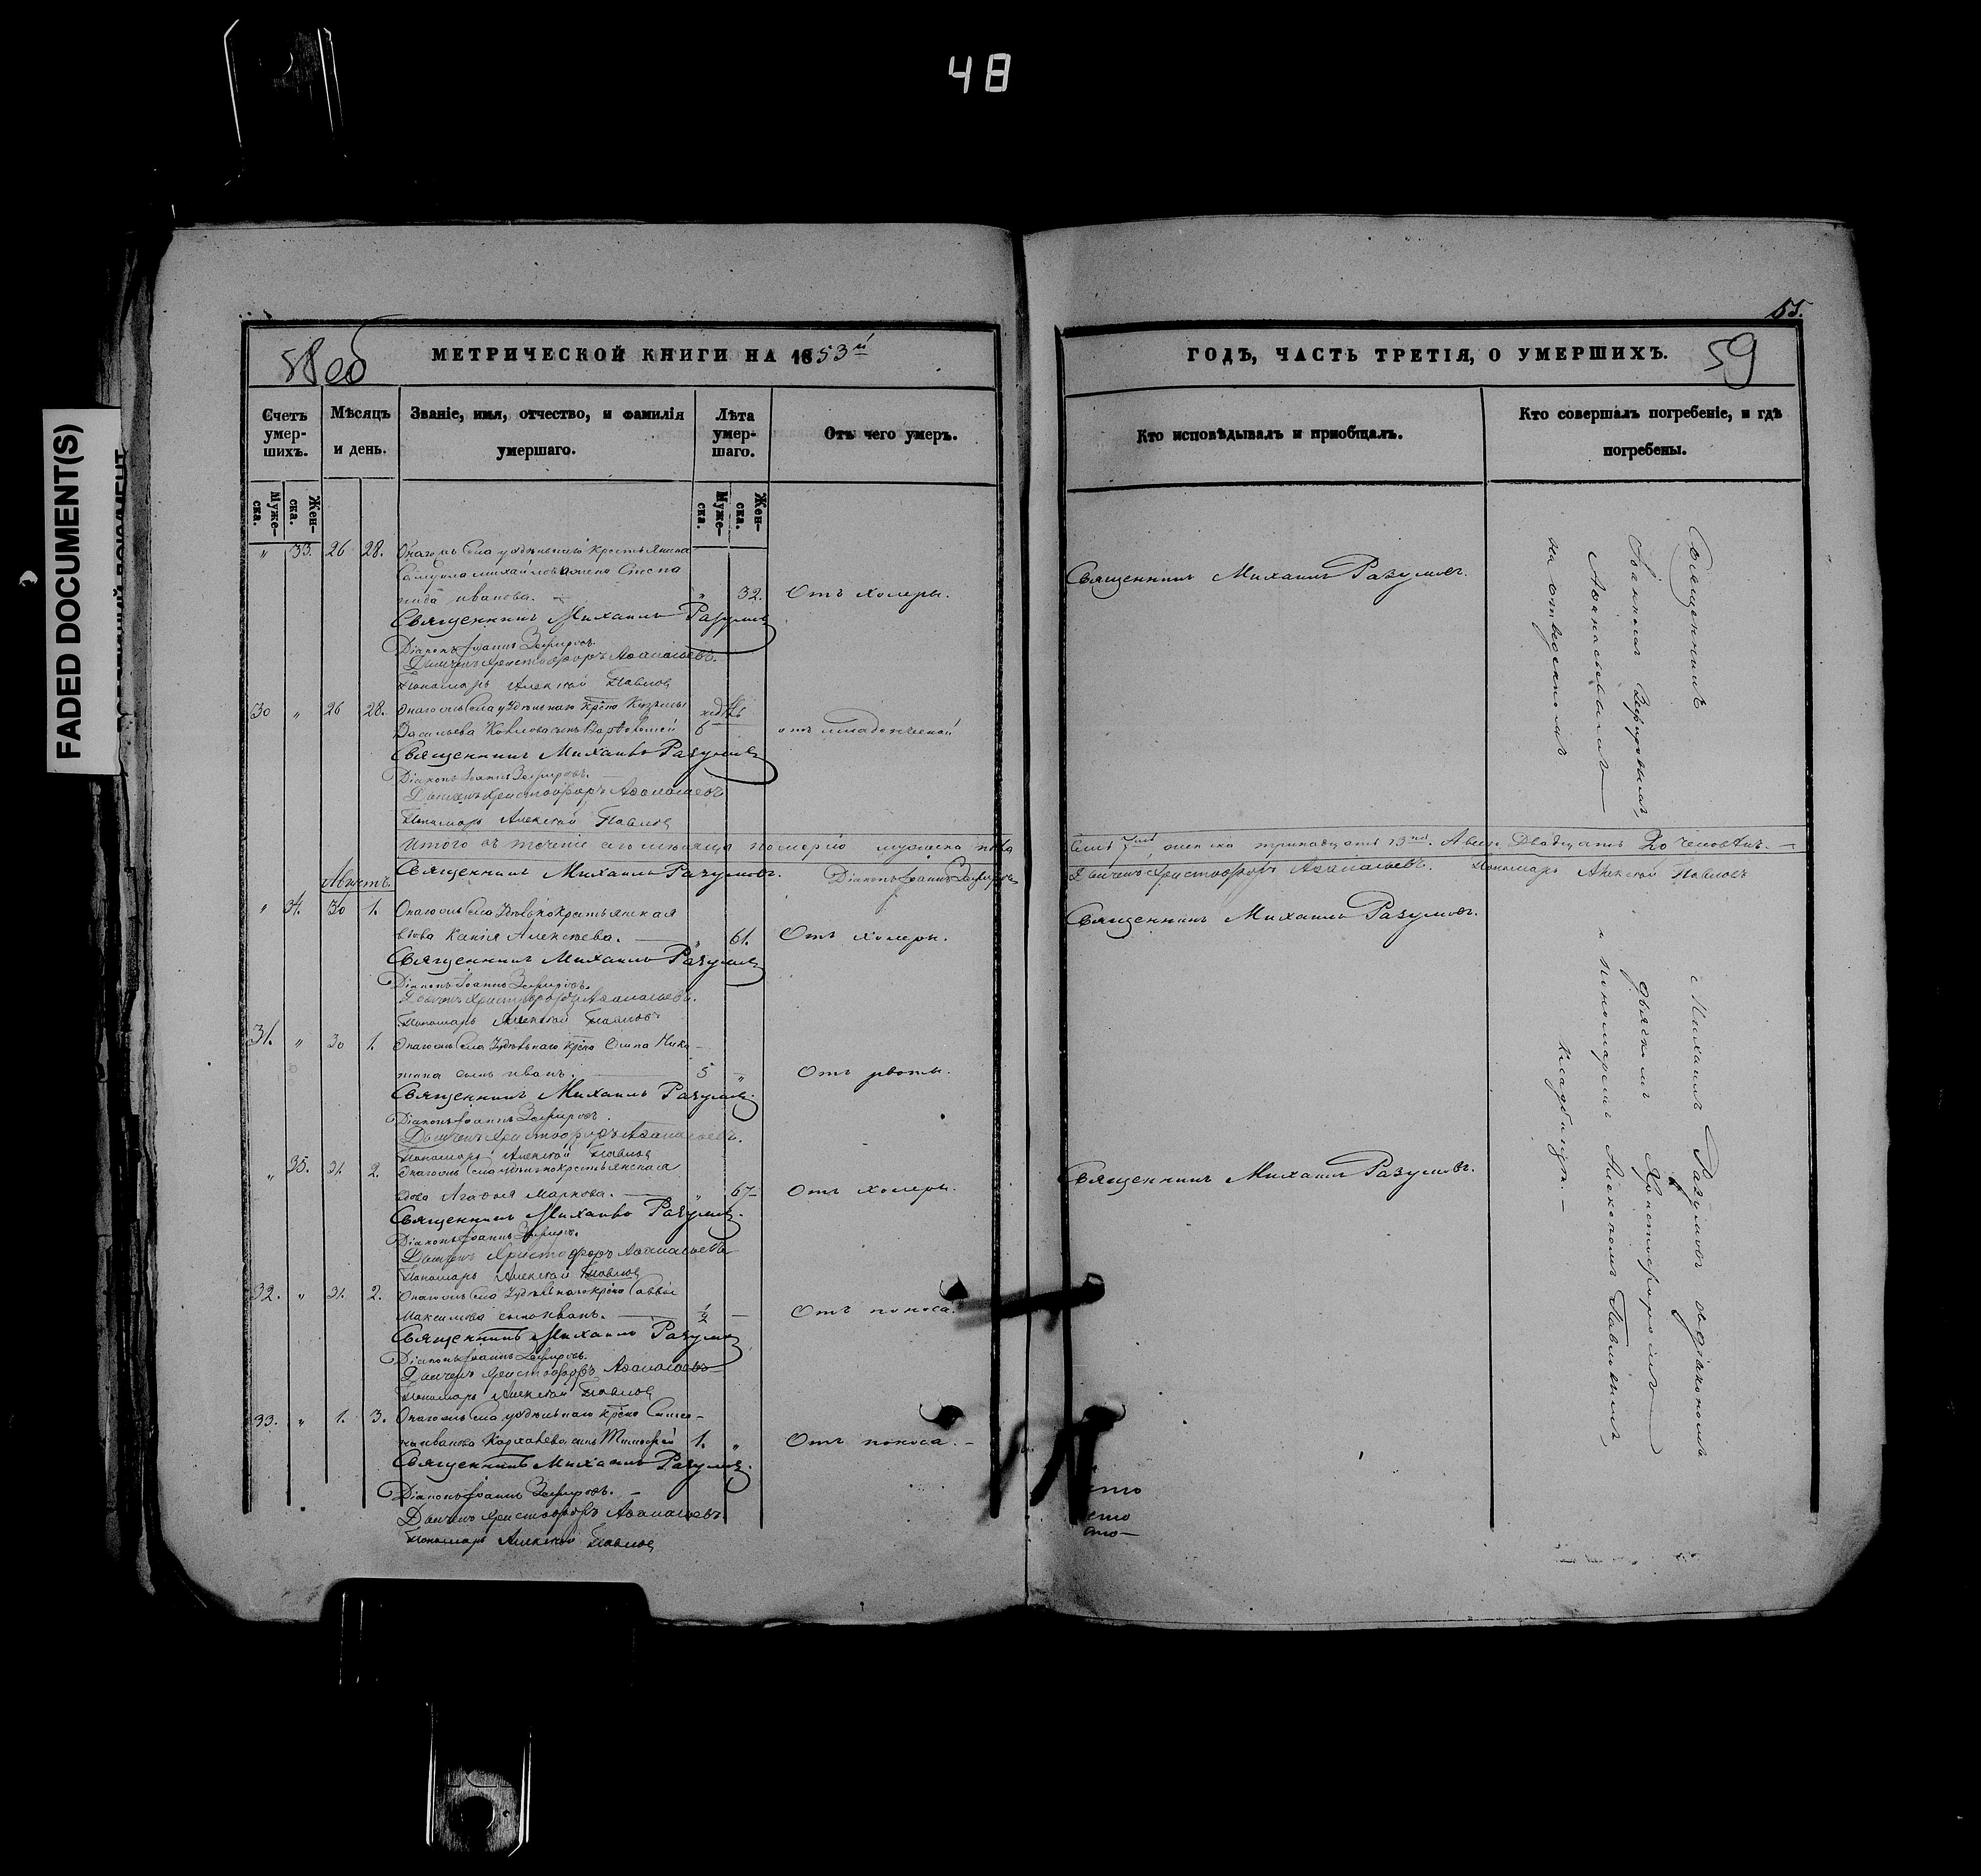 48
FADED DOCUMENT(S)
58 об
МЕТРИЧЕСКОЙ КНИГИ НА 1853й
Счетъ умер-шихъ.
Мѣсяцъ и день.
Званіе, имя, отчество, и фамилія умершаго.
Лѣта умер-шаго.
Отъ чего умеръ.
Муже-ска.
Жен-ска.
Муже-ска.
Жен-ска.
" 33. 26 28. Онагожъ Села удѣльнаго крестьянина
Михайлова жена Степа
нида иванова. — " 32. Отъ холеры.
Священникъ Михаилъ Разумовъ
Діаконъ Іоаннъ Зефировъ
Дьячекъ Христофоръ Аѳанасьевъ.
Пономарь Алексѣй Павловъ
30 " 26 28. Онагожъ Села удѣльнаго крѣно Козьмы
Васильева сынъ Варѳоломей 6 отъ младенческой
Священникъ Михаилъ Разумовъ
Діаконъ Іоаннъ Зефировъ. —
Дьячекъ Христофоръ Аѳанасьевъ
Пономарь Алексѣй Павловъ
Итого въ теченіе сего мѣсяца померло мужеска пола
Священникъ Михаилъ Разумовъ. Діаконъ Іоаннъ Зефировъ
Августъ.
" 34. 30 1. Онагожъ Села Удѣльнокрестьянская
вдова Алексѣева. — " 61. Отъ холеры.
Священникъ Михаилъ Разумовъ
Діаконъ Іоаннъ Зефировъ.
Дьячекъ Христофоръ Аѳанасьевъ.
Пономарь Алексѣй Павловъ
31. " 30 1. Онагожъ Села Удѣльнаго крѣно Ники-
тина сынъ иванъ. — 5 " Отъ рвоты.
Священникъ Михаилъ Разумовъ.
Діаконъ Іоаннъ Зефировъ.
Дьячекъ Христофоръ Аѳанасьевъ.
Пономарь Алексѣй Павловъ
" 35. 31. 2. Онагожъ Села удѣльнокрестьянская
вдова Агафья Маркова. — " 67 Отъ холеры.
Священникъ Михаилъ Разумовъ.
Діаконъ Іоаннъ Зефировъ.
Дьячекъ Христофоръ Аѳанасьевъ
Пономарь Алексѣй Павловъ
32. " 31. 2. Онагожъ Села Удѣльнаго крѣно Саввы
Максимова сынъ иванъ. — ½ — Отъ поноса.
Священникъ Михаилъ Разумовъ
Діаконъ Іоаннъ Зефировъ.
Дьячекъ Христофоръ Аѳанасьевъ
Пономарь Алексѣй Павловъ
33. " 1. 3. Онагожъ Села удѣльнаго крѣно Симео-
на иванова сынъ Тимофей 1. " Отъ поноса. —
Священникъ Михаилъ Разумовъ.
Діаконъ Іоаннъ Зефировъ. —
Дьячекъ Христофоръ Аѳанасьевъ
Пономарь Алексѣй Павловъ
55.
ГОДЪ, ЧАСТЬ ТРЕТІЯ, О УМЕРШИХЪ.
59
Кто исповѣдывалъ и пріобщалъ.
Кто совершалъ погребеніе, и гдѣ погребены.
Священникъ Михаилъ Разумовъ.
семь 7мь, женска тринадцать 13ть. А всего Двадцать 20 человѣкъ. —
Дьячекъ Христофоръ Аѳанасьевъ. Пономарь Алексѣй Павловъ
Священникъ Михаилъ Разумовъ.
Священникъ Михаилъ Разумовъ.
Священникъ Михаилъ Разумовъ съ діакономъ
Іоанномъ Зефировымъ, дьячкомъ Христофоромъ
Аѳанасьевымъ и пономаремъ Алексѣемъ Павловымъ,
на отведенномъ кладбищѣ. —